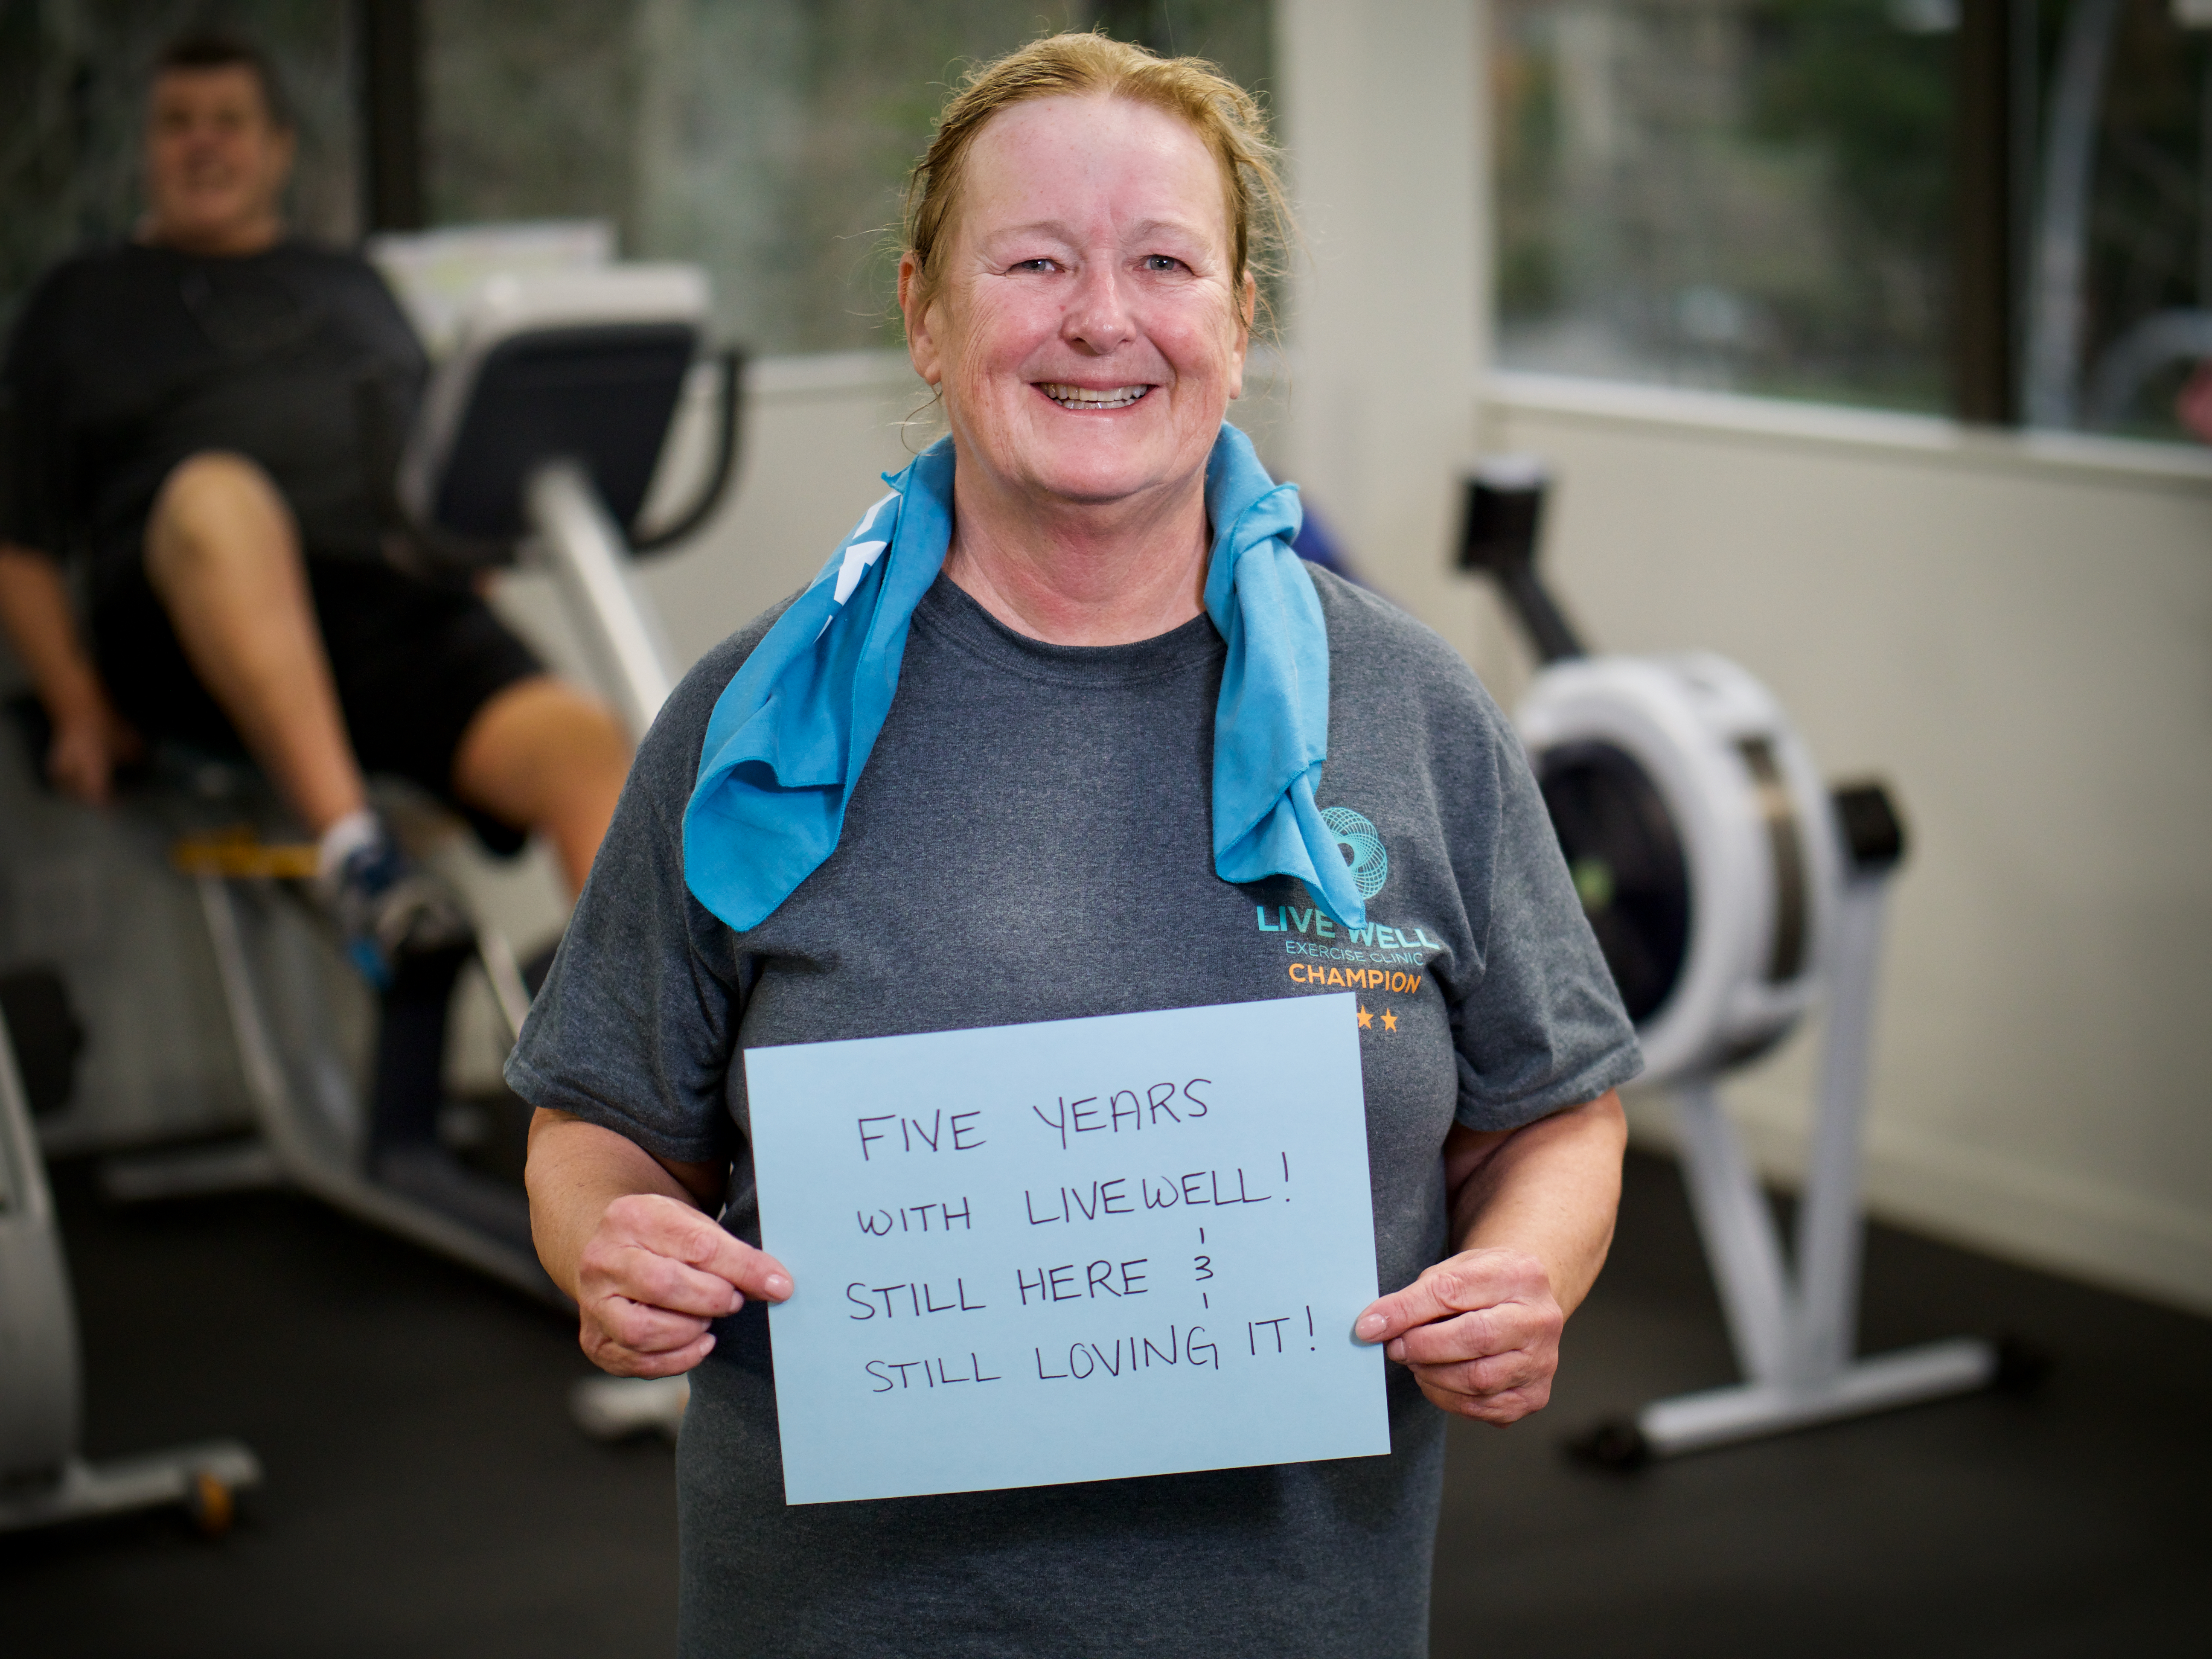 LIVE WELL
EXERCISE CLINIC
CHAMPION
FIVE YEARS
WITH LIVEWELL!
STILL HERE &
STILL LOVING IT!